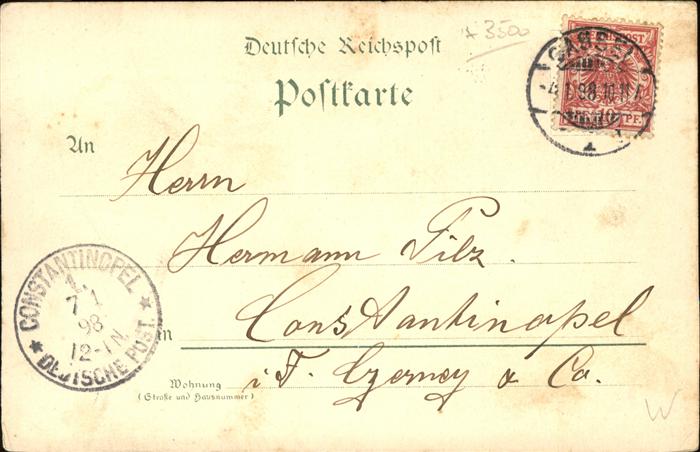 * 3500
Deutsche Reichspost
Postkarte
CASSEL
-4.1.98.10-11V.
1
10 PF.
An
Herrn
Hermann Pilz.
in Constantinopel
i. F. Czerney & Co.
CONSTANTINOPEL
1.
7 1
98
12-1N
* DEUTSCHE POST. *
Wohnung
(Straße und Hausnummer)
W